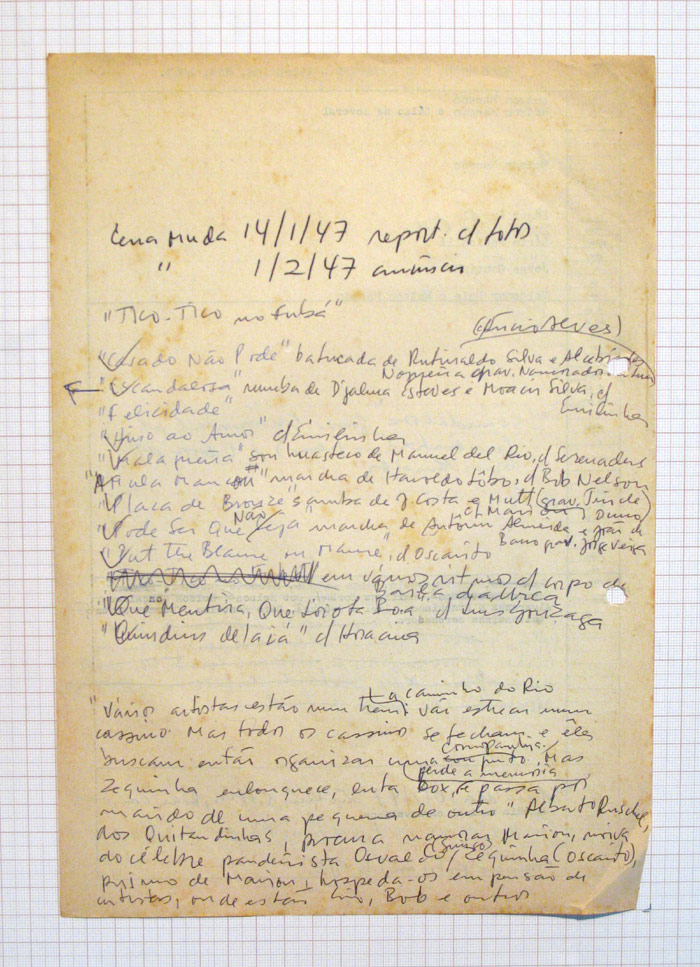 Cena Muda 14/1/47 report. c/ fotos
" 1/2/47 anúncio
"Tico-Tico no fubá"
(Lúcio Alves)
"Casado Não Pode" batucada de Rutinaldo Silva e Alcebíades
Nogueira grav. Namorados da Lua
"Escandalosa" rumba de Djalma Esteves e Moacir Silva, c/
"Felicidade" Emilinha
"Hino ao Amor" c/ Emilinha
"Malagueña" son huasteco de Manuel del Rio, c/ Serenaders
"A Mula Manca" marcha de Haroldo Lôbo, c/ Bob Nelson
"Placa de Bronze" samba de J. Costa e Mutt (grav. Linda)
c/ Marion
"Pode Ser Que Não Seja" marcha de Antônio Almeida e João de
Barro grav. Jorge Veiga
"Put The Blame on Mame", c/ Oscarito
em vários ritmos c/ corpo de
"Que Mentira, Que Lorota Boa" c/ Luis Gonzaga
"Quindins de Iaiá" c/ Horacina
"Vários artistas estão num trem a caminho do Rio vão estrear num
cassino. Mas todos os cassinos se fecham e êles
buscam então organizar uma companhia. Mas
Zequinha enlouquece, perde a memória e se passa por
marido de uma pequena de outro" Alberto Ruschel,
dos Quitandinhas, procura namorar Marion, noiva
do célebre pandeirista Osvaldo, Zequinha (Oscarito),
primo de Marion, hospeda-os em pensão de
artistas, onde estão Bob e outros